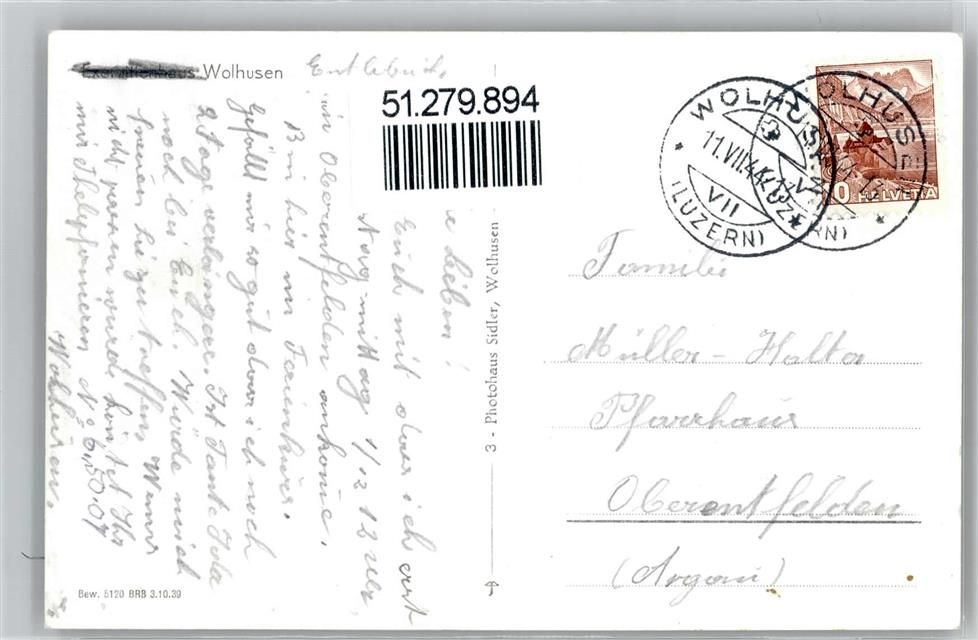 Exerzitienhaus Wolhusen
Entlebuch,
51.279.894
WOLHUSEN
11.VII.44
VII
(LUZERN)
WOLHUSEN
(LUZERN)
HELVETIA
e Lieben!
Euch mit dass ich erst
Nachmittag 1/2 12 Uhr
in Oberentfelden ankome.
Bin hier im Ferienkurs.
Gefällt mir so gut dass ich noch
2 Tage verlängere. Ist Tante Ida
noch bei Euch. Würde mich
freuen sie zu treffen. Wenns
nicht passen würde könntet Ihr
mir Thelephonieren No 6.50.07
Wolhusen.
3 - Photohaus Sidler, Wolhusen
Familie
Müller - Halter
Pfarrhaus
Oberentfelden
(Argau)
Bew. 6120 BRB 3.10.39